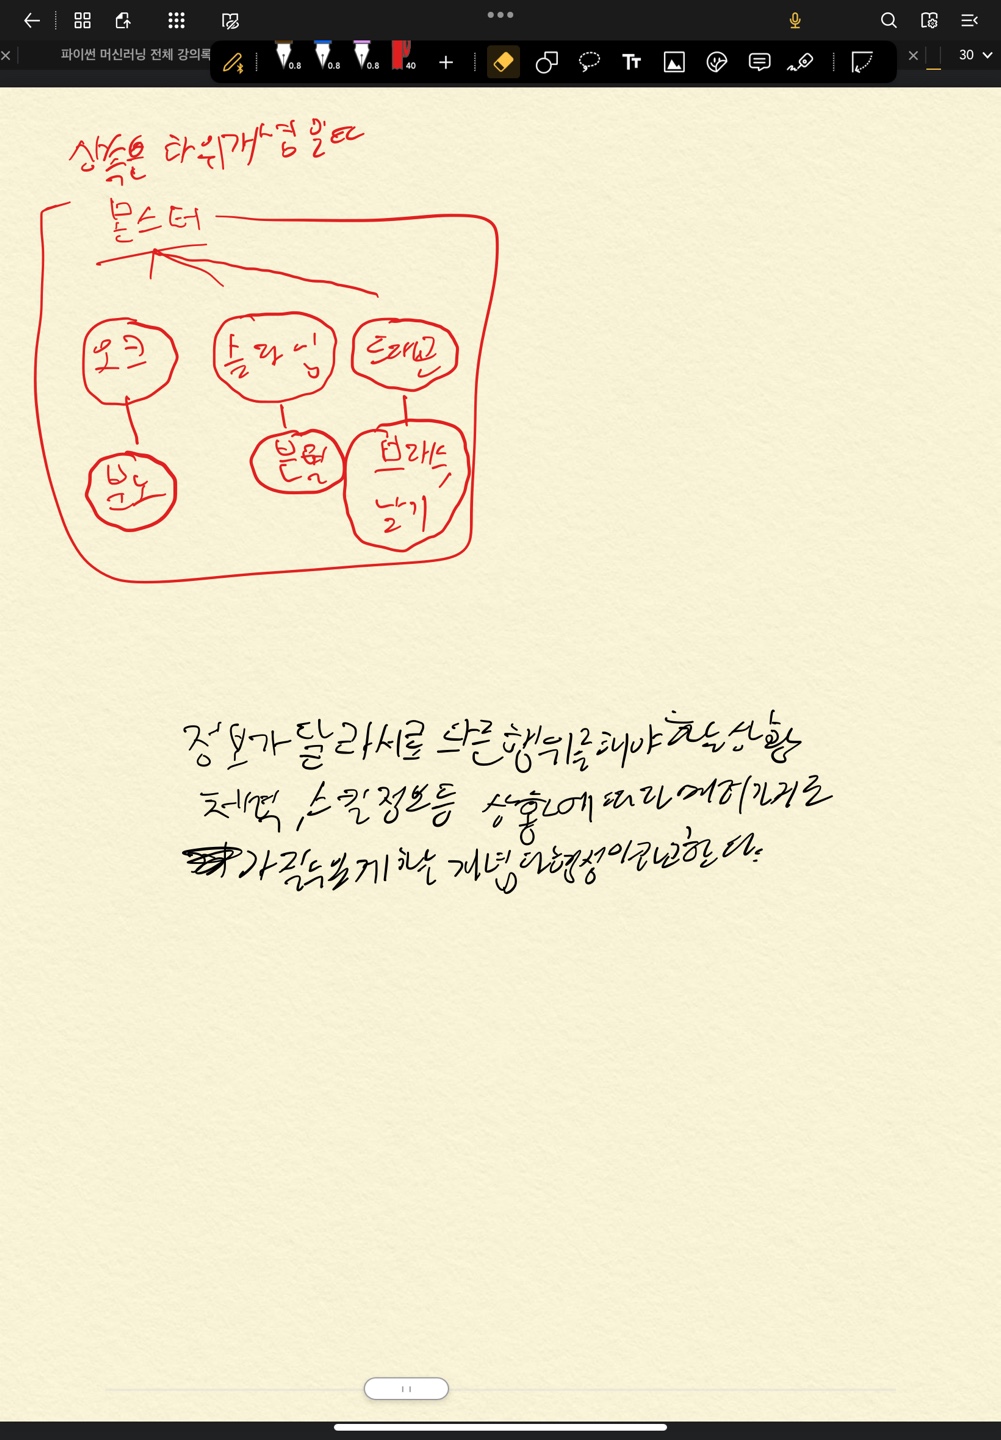 파이썬 머신러닝 전체 강의록
0.8 0.8 0.8 40 30
상속은 타위개념일때
몬스터
오크 슬라임 드래곤
분노 분열 브래스
날기
정보가 달라서로 다른행위를해야하는상황
체력, 스킬정보등 상황에따라여러가지로
가질수있게하는 개념다형성이라고한다.